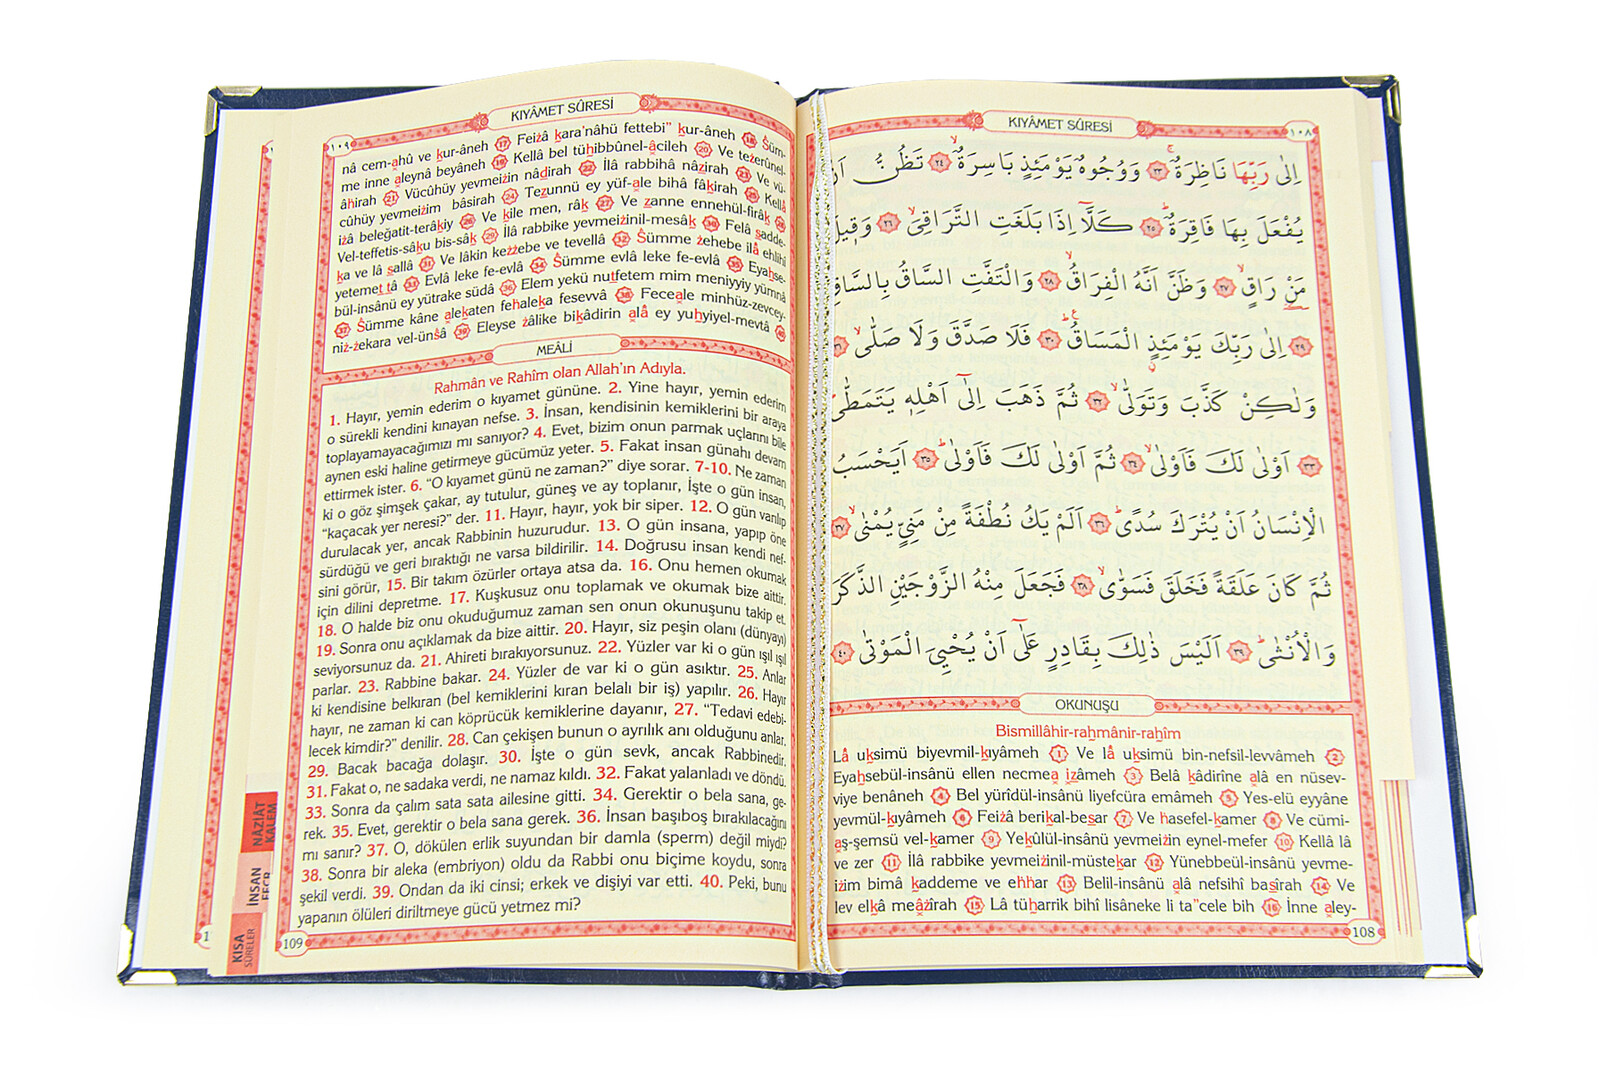 KIYÂMET SÛRESİ
١٠٨
اِلٰى رَبِّهَا نَاظِرَةٌۚ ﴿٢٣﴾ وَوُجُوهٌ يَوْمَئِذٍ بَاسِرَةٌۙ ﴿٢٤﴾ تَظُنُّ اَنْ
يُفْعَلَ بِهَا فَاقِرَةٌۜ ﴿٢٥﴾ كَلَّٓا اِذَا بَلَغَتِ التَّرَاقِيَۙ ﴿٢٦﴾ وَق۪يلَ
مَنْ رَاقٍۙ ﴿٢٧﴾ وَظَنَّ اَنَّهُ الْفِرَاقُۙ ﴿٢٨﴾ وَالْتَفَّتِ السَّاقُ بِالسَّاقِۙ
﴿٢٩﴾ اِلٰى رَبِّكَ يَوْمَئِذٍ الْمَسَاقُۜ ﴿٣٠﴾ فَلَا صَدَّقَ وَلَا صَلّٰىۙ ﴿٣١﴾
وَلٰكِنْ كَذَّبَ وَتَوَلّٰىۙ ﴿٣٢﴾ ثُمَّ ذَهَبَ اِلٰٓى اَهْلِه۪ يَتَمَطّٰىۜ
﴿٣٣﴾ اَوْلٰى لَكَ فَاَوْلٰىۙ ﴿٣٤﴾ ثُمَّ اَوْلٰى لَكَ فَاَوْلٰىۜ ﴿٣٥﴾ اَيَحْسَبُ
الْاِنْسَانُ اَنْ يُتْرَكَ سُدًىۜ ﴿٣٦﴾ اَلَمْ يَكُ نُطْفَةً مِنْ مَنِيٍّ يُمْنٰىۙ ﴿٣٧﴾
ثُمَّ كَانَ عَلَقَةً فَخَلَقَ فَسَوّٰىۙ ﴿٣٨﴾ فَجَعَلَ مِنْهُ الزَّوْجَيْنِ الذَّكَرَ
وَالْاُنْثٰىۜ ﴿٣٩﴾ اَلَيْسَ ذٰلِكَ بِقَادِرٍ عَلٰٓى اَنْ يُحْيِيَ الْمَوْتٰى ﴿٤٠﴾
OKUNUŞU
Bismillâhir-rahmânir-rahîm
Lâ uksimü biyevmil-kıyâmeh 1 Ve lâ uksimü bin-nefsil-levvâmeh 2
Eyahsebül-insânü ellen necmea ızâmeh 3 Belâ kâdirîne alâ en nüsev-
viye benâneh 4 Bel yürîdül-insânü liyefcüra emâmeh 5 Yes-elü eyyâne
yevmül-kıyâmeh 6 Feizâ berikal-besar 7 Ve hasefel-kamer 8 Ve cümi-
aş-şemsü vel-kamer 9 Yekûlül-insânü yevmeizin eynel-mefer 10 Kellâ lâ
ve zer 11 İlâ rabbike yevmeizinil-müstekar 12 Yünebbeül-insânü yevme-
izim bimâ kaddeme ve ehhar 13 Belil-insânü alâ nefsihî basîrah 14 Ve
lev elkâ meâzîrah 15 Lâ tüharrik bihî lisâneke li ta"cele bih 16 İnne aley-
108
KIYÂMET SÛRESİ
١٠٩
nâ cem-ahû ve kur-âneh 17 Feizâ kara'nâhü fettebi" kur-âneh 18 Süm-
me inne aleynâ beyâneh 19 Kellâ bel tühibbûnel-âcileh 20 Ve tezerûnel-
âhirah 21 Vücûhüy yevmeizin nâdirah 22 İlâ rabbihâ nâzirah 23 Ve vü-
cûhüy yevmeizim bâsirah 24 Tezunnü ey yüf-ale bihâ fâkirah 25 Kellâ
izâ beleğatit-terâkıy 26 Ve kıle men, râk 27 Ve zanne ennehül-firâk 28
Vel-teffetis-sâku bis-sâk 29 İlâ rabbike yevmeizinil-mesâk 30 Felâ sadde-
ka ve lâ sallâ 31 Ve lâkin kezzebe ve tevellâ 32 Sümme zehebe ilâ ehlihî
yetemettâ 33 Evlâ leke fe-evlâ 34 Sümme evlâ leke fe-evlâ 35 Eyahse-
bül-insânü ey yütrake südâ 36 Elem yekü nutfetem mim meniyyiy yümnâ
37 Sümme kâne alekaten fehaleka fesevvâ 38 Feceale minhüz-zevcey-
niz-zekara vel-ünsâ 39 Eleyse zâlike bikâdirin alâ ey yuhyiyel-mevtâ 40
MEÂLİ
Rahmân ve Rahîm olan Allah'ın Adıyla.
1. Hayır, yemin ederim o kıyamet gününe. 2. Yine hayır, yemin ederim
o sürekli kendini kınayan nefse. 3. İnsan, kendisinin kemiklerini bir araya
toplayamayacağımızı mı sanıyor? 4. Evet, bizim onun parmak uçlarını bile
aynen eski haline getirmeye gücümüz yeter. 5. Fakat insan günahı devam
ettirmek ister. 6. "O kıyamet günü ne zaman?" diye sorar. 7-10. Ne zaman
ki o göz şimşek çakar, ay tutulur, güneş ve ay toplanır, İşte o gün insan,
"kaçacak yer neresi?" der. 11. Hayır, hayır, yok bir siper. 12. O gün varılıp
durulacak yer, ancak Rabbinin huzurudur. 13. O gün insana, yapıp öne
sürdüğü ve geri bıraktığı ne varsa bildirilir. 14. Doğrusu insan kendi nef-
sini görür, 15. Bir takım özürler ortaya atsa da. 16. Onu hemen okumak
için dilini depretme. 17. Kuşkusuz onu toplamak ve okumak bize aittir.
18. O halde biz onu okuduğumuz zaman sen onun okunuşunu takip et.
19. Sonra onu açıklamak da bize aittir. 20. Hayır, siz peşin olanı (dünyayı)
seviyorsunuz da. 21. Ahireti bırakıyorsunuz. 22. Yüzler var ki o gün ışıl ışıl
parlar. 23. Rabbine bakar. 24. Yüzler de var ki o gün asıktır. 25. Anlar
ki kendisine belkıran (bel kemiklerini kıran belalı bir iş) yapılır. 26. Hayır
hayır, ne zaman ki can köprücük kemiklerine dayanır, 27. "Tedavi edebi-
lecek kimdir?" denilir. 28. Can çekişen bunun o ayrılık anı olduğunu anlar.
29. Bacak bacağa dolaşır. 30. İşte o gün sevk, ancak Rabbinedir.
31. Fakat o, ne sadaka verdi, ne namaz kıldı. 32. Fakat yalanladı ve döndü.
33. Sonra da çalım sata sata ailesine gitti. 34. Gerektir o bela sana, ge-
rek. 35. Evet, gerektir o bela sana gerek. 36. İnsan başıboş bırakılacağını
mı sanır? 37. O, dökülen erlik suyundan bir damla (sperm) değil miydi?
38. Sonra bir aleka (embriyon) oldu da Rabbi onu biçime koydu, sonra
şekil verdi. 39. Ondan da iki cinsi; erkek ve dişiyi var etti. 40. Peki, bunu
yapanın ölüleri diriltmeye gücü yetmez mi?
109
NÂZİÂT
KALEM
İNSAN
FECR
KISA
SÛRELER